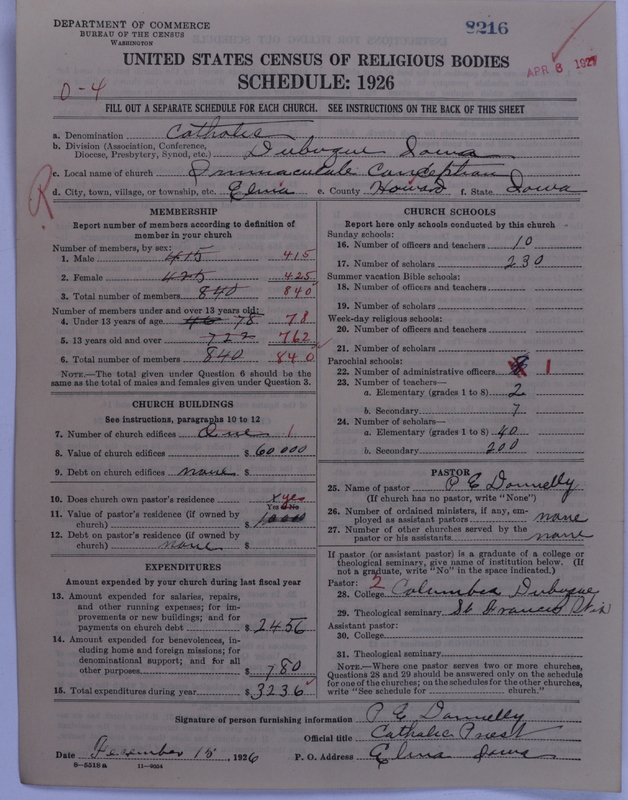 DEPARTMENT OF COMMERCE
BUREAU OF THE CENSUS
WASHINGTON
8216
APR 8 1927
UNITED STATES CENSUS OF RELIGIOUS BODIES
SCHEDULE: 1926
0-4
FILL OUT A SEPARATE SCHEDULE FOR EACH CHURCH. SEE INSTRUCTIONS ON THE BACK OF THIS SHEET
a. Denomination Catholic
b. Division (Association, Conference, Diocese, Presbytery, Synod, etc.) Dubuque Iowa
c. Local name of church Immaculate Conception
d. City, town, village, or township, etc. Elma e. County Howard f. State Iowa
R
MEMBERSHIP
Report number of members according to definition of member in your church
Number of members, by sex:
1. Male 415 415
2. Female 425 425
3. Total number of members 840 840
Number of members under and over 13 years old:
4. Under 13 years of age 78 78
5. 13 years old and over 722 762
6. Total number of members 840 840
NOTE.—The total given under Question 6 should be the same as the total of males and females given under Question 3.
CHURCH BUILDINGS
See instructions, paragraphs 10 to 12
7. Number of church edifices One 1
8. Value of church edifices $ 60000
9. Debt on church edifices none $
10. Does church own pastor's residence x yes
Yes or No
11. Value of pastor's residence (if owned by church) $ 10000
12. Debt on pastor's residence (if owned by church) none $
EXPENDITURES
Amount expended by your church during last fiscal year
13. Amount expended for salaries, repairs, and other running expenses; for improvements or new buildings; and for payments on church debt $ 2456
14. Amount expended for benevolences, including home and foreign missions; for denominational support; and for all other purposes $ 780
15. Total expenditures during year $ 3236
CHURCH SCHOOLS
Report here only schools conducted by this church
Sunday schools:
16. Number of officers and teachers 10
17. Number of scholars 230
Summer vacation Bible schools:
18. Number of officers and teachers
19. Number of scholars
Week-day religious schools:
20. Number of officers and teachers
21. Number of scholars
Parochial schools:
22. Number of administrative officers 1
23. Number of teachers—
a. Elementary (grades 1 to 8) 2
b. Secondary 7
24. Number of scholars—
a. Elementary (grades 1 to 8) 40
b. Secondary 200
PASTOR
25. Name of pastor P E Donnelly
(If church has no pastor, write "None")
26. Number of ordained ministers, if any, employed as assistant pastors none
27. Number of other churches served by the pastor or his assistants none
If pastor (or assistant pastor) is a graduate of a college or theological seminary, give name of institution below. (If not a graduate, write "No" in the space indicated.)
Pastor: 2
28. College Columbia Dubuque
29. Theological seminary St Francis Wis
Assistant pastor:
30. College
31. Theological seminary
NOTE.—Where one pastor serves two or more churches, Questions 28 and 29 should be answered only on the schedule for one of the churches; on the schedules for the other churches, write "See schedule for church."
Signature of person furnishing information P E Donnelly
Official title Catholic Priest
Date December 15, 1926 P. O. Address Elma Iowa
8-5319a 11-9054